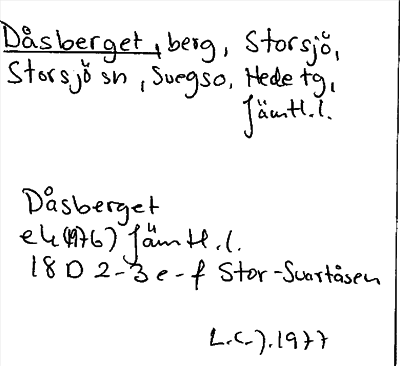 Dåsberget, berg, Storsjö,
Storsjö sn, Svegso, Hede tg,
Jämtl.l.
Dåsberget
ek (1976) Jämtl.l.
18 D 2-3 e-f Stor-Svartåsen
L.C.J. 1977